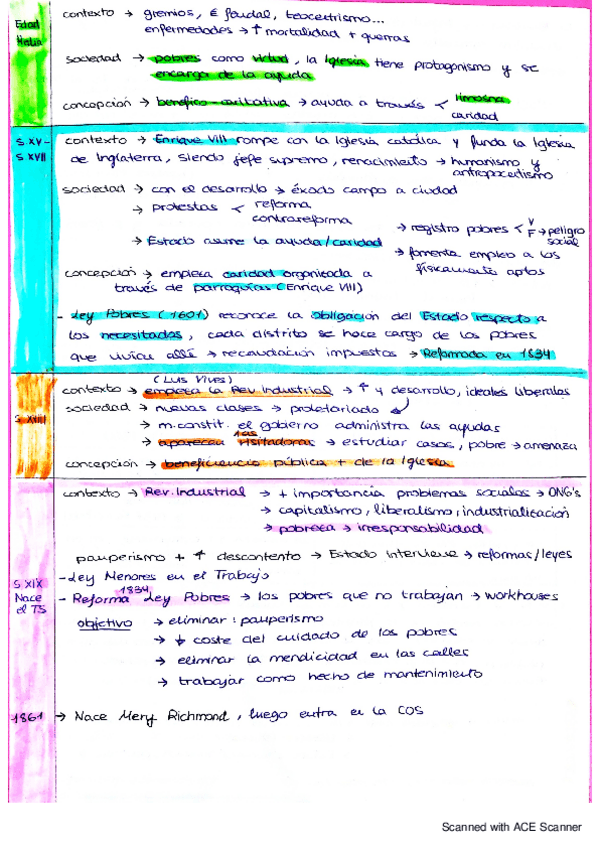 contexto → gremios, E feudal, teocentrismo...
Edad Media
enfermedades → ↑ mortalidad + guerras
sociedad → pobres como virtud, la Iglesia tiene protagonismo y se
encarga de la ayuda
concepción → benefico-caritativa → ayuda a través < limosna
caridad
S XV - S XVII
contexto → Enrique VIII rompe con la Iglesia católica y funda la Iglesia
de Inglaterra, siendo jefe supremo, renacimiento → humanismo y
antropocentismo
sociedad → con el desarrollo → éxodo campo a ciudad
→ protestas < reforma
contrareforma
→ registro pobres < V F → peligro social
→ Estado asume la ayuda/caridad
→ fomenta empleo a los
físicamente aptos
concepción → empieza caridad organizada a
través de parroquias (Enrique VIII)
- Ley Pobres (1601) reconoce la obligación del Estado respecto a
los necesitados, cada distrito se hace cargo de los pobres
que vivían allí → recaudación impuestos → Reformada en 1834
(Luis Vives)
contexto → empieza la Rev. Industrial → ↑ y desarrollo, ideales liberales
sociedad → nuevas clases → proletariado
S XVIII
→ m. constit. el gobierno administra las ayudas
→ aparecen 1as visitadoras → estudiar casos, pobre → amenaza
concepción → beneficiencia pública + de la Iglesia
contexto → Rev. Industrial → + importancia problemas sociales → ONG's
→ capitalismo, liberalismo, industrialización
→ pobreza → irresponsabilidad
pauperismo + ↑ descontento → Estado interviene → reformas/leyes
S XIX Nace el TS
- Ley Menores en el Trabajo
- Reforma 1834 Ley Pobres → los pobres que no trabajan → workhouses
objetivo → eliminar: pauperismo
→ ↓ coste del cuidado de los pobres
→ eliminar la mendicidad en las calles
→ trabajar como hecho de mantenimiento
1861 → Nace Mery Richmond, luego entra en la COS
Scanned with ACE Scanner